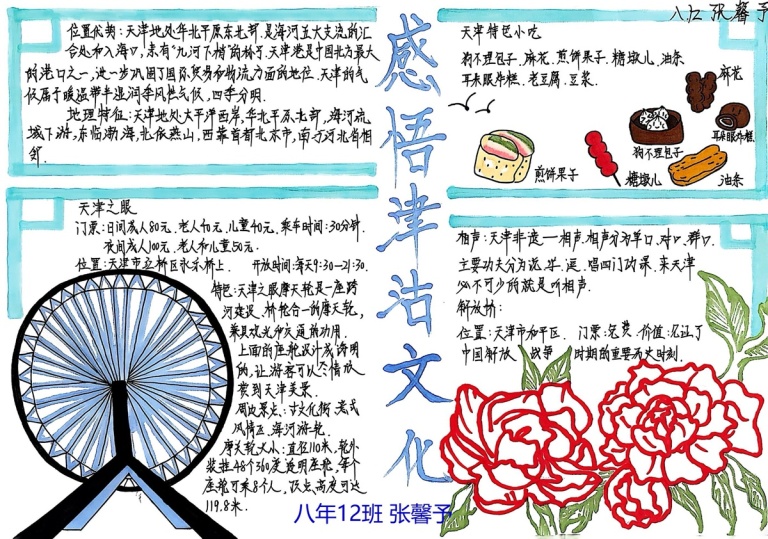 八12 张馨予
感悟津沽文化
位置优势:天津地处华北平原东北部.是海河五大支流的汇
合处和入海口,素有"九河下梢"的称号.天津港是中国北方最大
的港口之一,进一步巩固了国际贸易和物流方面的地位.天津的气
候属于暖温带半湿润季风性气候,四季分明.
地理特征:天津地处太平洋西岸,华北平原北部,海河流
域下游,东临渤海,北依燕山,西靠首都北京市,南与河北省相
邻.
天津特色小吃
狗不理包子.麻花.煎饼果子.糖墩儿.油条
耳朵眼炸糕.老豆腐.豆浆.
麻花
耳朵眼炸糕
狗不理包子
煎饼果子
糖墩儿
油条
天津之眼
门票:日间成人80元.老人40元.儿童40元.乘车时间:30分钟.
夜间成人100元.老人和儿童50元.
位置:天津市红桥区永乐桥上. 开放时间:每天9:30-21:30.
特色:天津之眼摩天轮是一座跨
河建设、桥轮合一的摩天轮,
兼具观光和交通的功用.
上面的座舱设计成透明
的,让游客可以尽情欣
赏到天津美景.
周边景点:古文化街.意式
风情区.海河游轮.
摩天轮大小:直径110米,轮外
装挂48个360度透明座舱,每个
座舱可乘8个人,顶点高度可达
119.8米.
相声:天津非遗一相声.相声分为单口.对口.群口.
主要功夫分为说.学.逗.唱四门功课.来天津
必不可少的就是听相声.
解放桥:
位置:天津市和平区. 门票:免费.价值:见证了
中国解放 战争 时期的重要历史时刻.
八年12班 张馨予